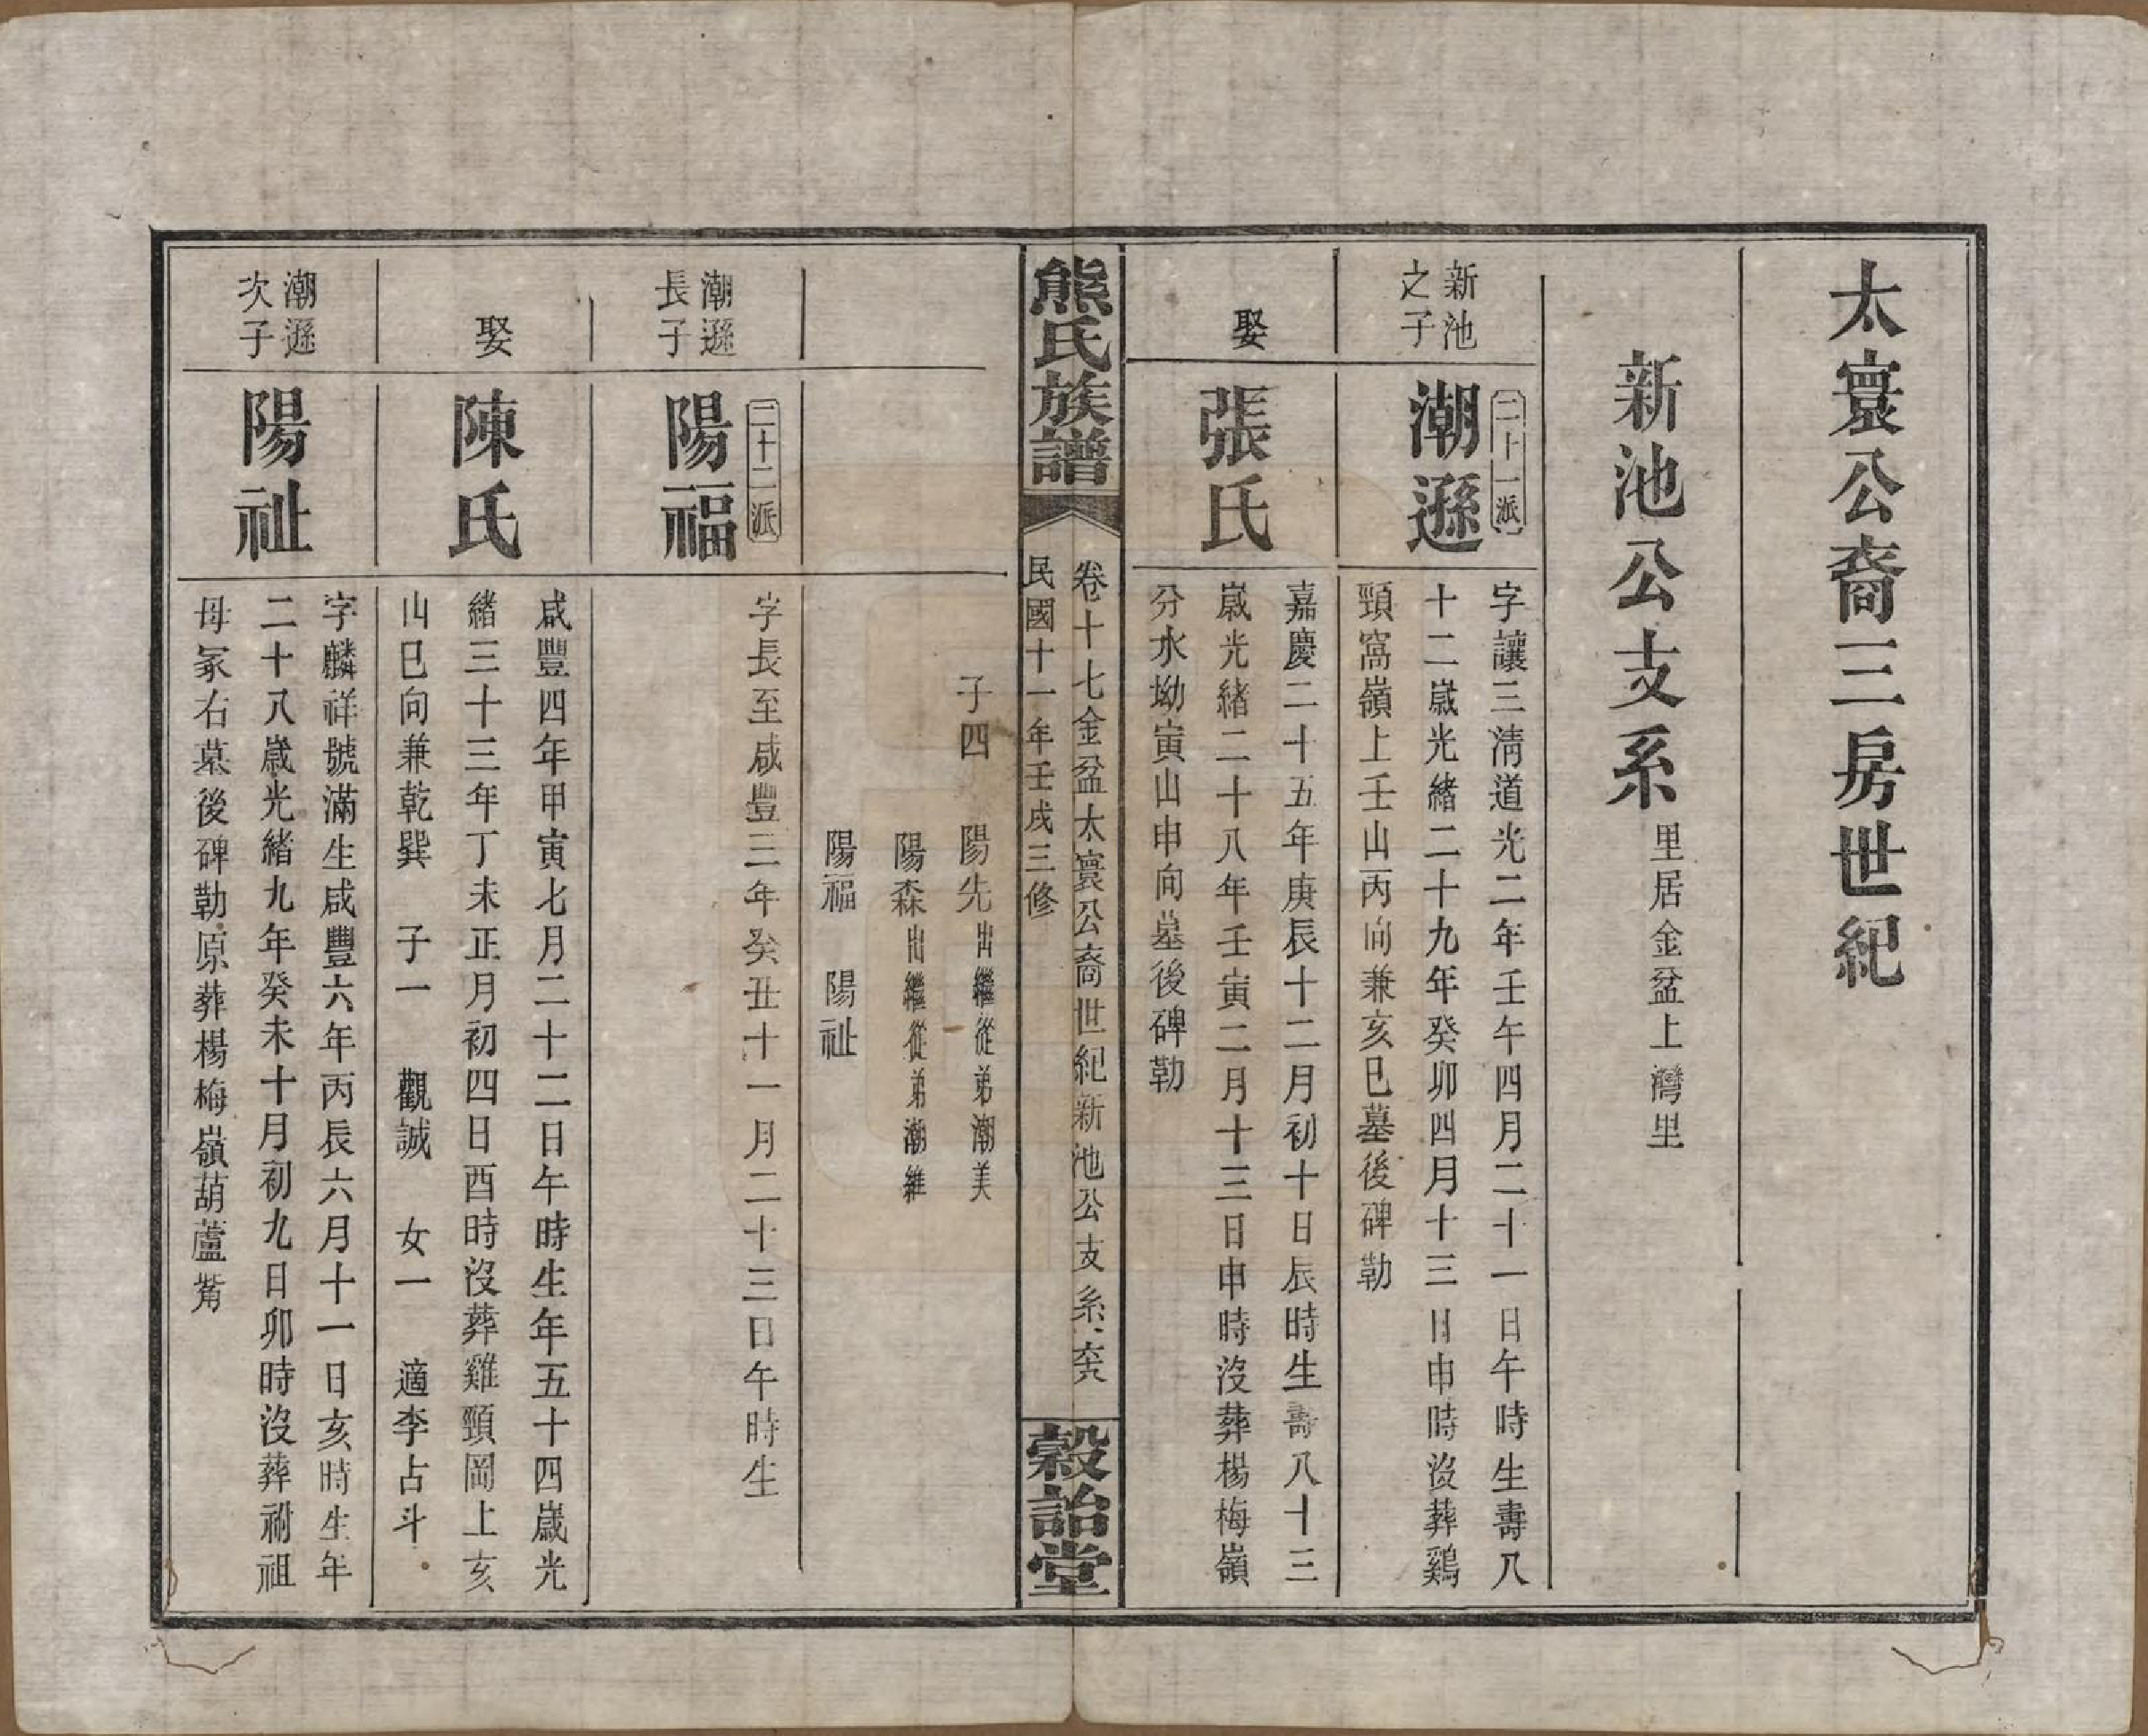 太寰公裔三房世紀
新池公支系
里居金盆上灣里
新池
之子
二十一派
潮遜
字讓三清道光二年壬午四月二十一日午時生壽八
十二歲光緒二十九年癸卯四月十三日申時沒葬鷄
頸窩嶺上壬山丙向兼亥巳墓後碑勒
娶
張氏
嘉慶二十五年庚辰十二月初十日辰時生壽八十三
歲光緒二十八年壬寅二月十三日申時沒葬楊梅嶺
分水坳寅山申向墓後碑勒
熊氏族譜
卷十七金盆太寰公裔世紀新池公支系
民國十一年壬戌三修
穀詒堂
子四 陽先出繼從弟潮美
陽森出繼從弟潮維
陽福 陽祉
潮遜
長子
二十二派
陽福
字長至咸豐三年癸丑十一月二十三日午時生
娶
陳氏
咸豐四年甲寅七月二十二日午時生年五十四歲光
緒三十三年丁未正月初四日酉時沒葬雞頸岡上亥
山巳向兼乾巽 子一 觀誠 女一 適李占斗
潮遜
次子
陽祉
字麟祥號滿生咸豐六年丙辰六月十一日亥時生年
二十八歲光緒九年癸未十月初九日卯時沒葬祔祖
母冢右墓後碑勒原葬楊梅嶺葫蘆